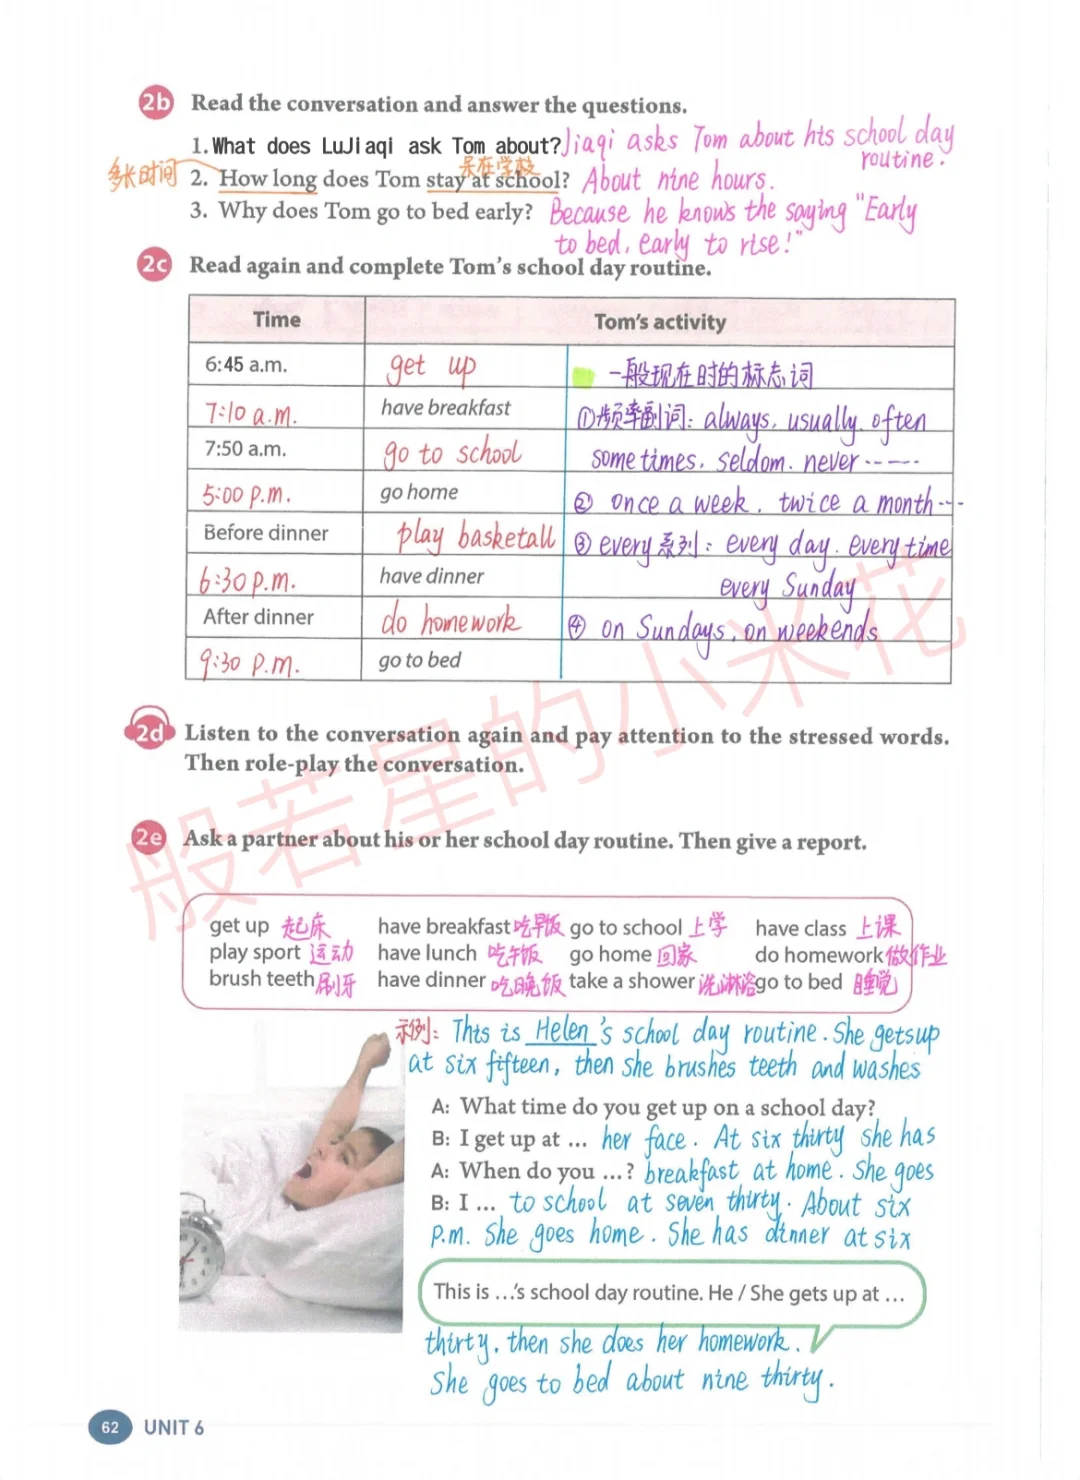 2b Read the conversation and answer the questions.
1. What does LuJiaqi ask Tom about? Jiaqi asks Tom about his school day
routine.
多长时间 呆在学校
2. How long does Tom stay at school? About nine hours.
3. Why does Tom go to bed early? Because he knows the saying "Early
to bed, early to rise!"
2c Read again and complete Tom's school day routine.
Time Tom's activity
6:45 a.m. get up 一般现在时的标志词
7:10 a.m. have breakfast ①频率副词: always, usually, often
7:50 a.m. go to school sometimes, seldom, never ······
5:00 p.m. go home ② once a week, twice a month ···
Before dinner play basketall ③ every系列: every day, every time
6:30 p.m. have dinner every Sunday
After dinner do homework ④ on Sundays, on weekends
9:30 p.m. go to bed
2d Listen to the conversation again and pay attention to the stressed words.
Then role-play the conversation.
2e Ask a partner about his or her school day routine. Then give a report.
get up 起床 have breakfast 吃早饭 go to school 上学 have class 上课
play sport 运动 have lunch 吃午饭 go home 回家 do homework 做作业
brush teeth 刷牙 have dinner 吃晚饭 take a shower 洗淋浴 go to bed 睡觉
示例: This is Helen's school day routine. She gets up
at six fifteen, then she brushes teeth and washes
A: What time do you get up on a school day?
B: I get up at ... her face. At six thirty she has
A: When do you ...? breakfast at home. She goes
B: I ... to school at seven thirty. About six
p.m. She goes home. She has dinner at six
This is ...'s school day routine. He / She gets up at ...
thirty, then she does her homework.
She goes to bed about nine thirty.
62 UNIT 6
般若星的小米花